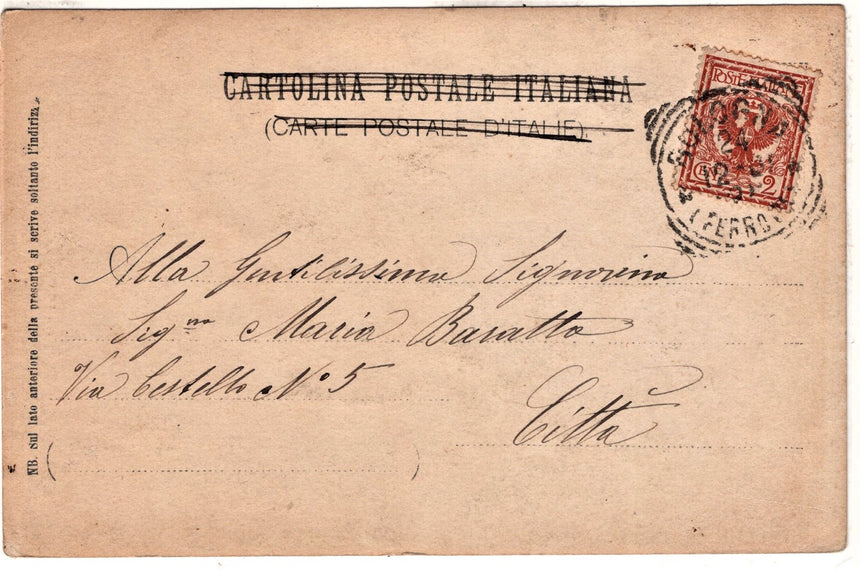 CARTOLINA POSTALE ITALIANA
(CARTE POSTALE D'ITALIE)
POSTE
2
BOLOGNA
24
12
(FERRO
Alla Gentilissima Signorina
Sig.na Maria Baratta
Via Cestello No 5
Città
NB. Sul lato anteriore della presente si scrive soltanto l'indirizzo